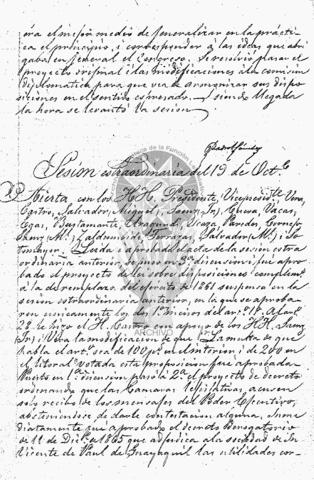 era el mejor medio de generalizar en la prácti-
ca el principio, i corresponder á las ideas que abri-
gaba en jeneral el Congreso. Se resolvió pasar el
proyecto orijinal i las modificaciones á la comision
diplomática para que vea de armonizar sus dispo-
siciones en el sentido espresado. I siendo llegada
la hora se levantó la sesion.
Sesion estraordinaria del 19 de Octe
Abierta con los H.H. Presidente, Vicepresidte Vera,
Castro, Salvador Miguel, Cueva, Vacas,
Egas, Bustamante,
Leida i aprobada la acta de la sesion estra-
ordinaria anterior, se puso en 3a discusion i fué apro-
bado el proyecto de lei sobre disposiciones
á la de reemplazo del ejército de 1861 suspensa en la
sesion estraordinaria anterior, en la que se aproba-
ron unicamente los dos incisos del arto 1º. Al arto
28 le hizo el H. Castro con apoyo de los H.H.
i Vera la modificacion de que "La multa de que
habla el arto sea de 100 ps en el interior i de 200 en
el litoral". Votada esta proposicion fué aprobada.
Puesto en 1a discusion pasó á 2a el proyecto de decreto
ordenando que las Cámaras lejislativas acusen
solo recibo de los mensajes del Poder Ejecutivo,
absteniéndose de darle contestacion alguna. Inme
diatamente fué aprobado el decreto derogatorio
de 11 de Dice de 1865 que adjudica á la sociedad de San
Vicente de Paul de Guayaquil las utilidades cor-